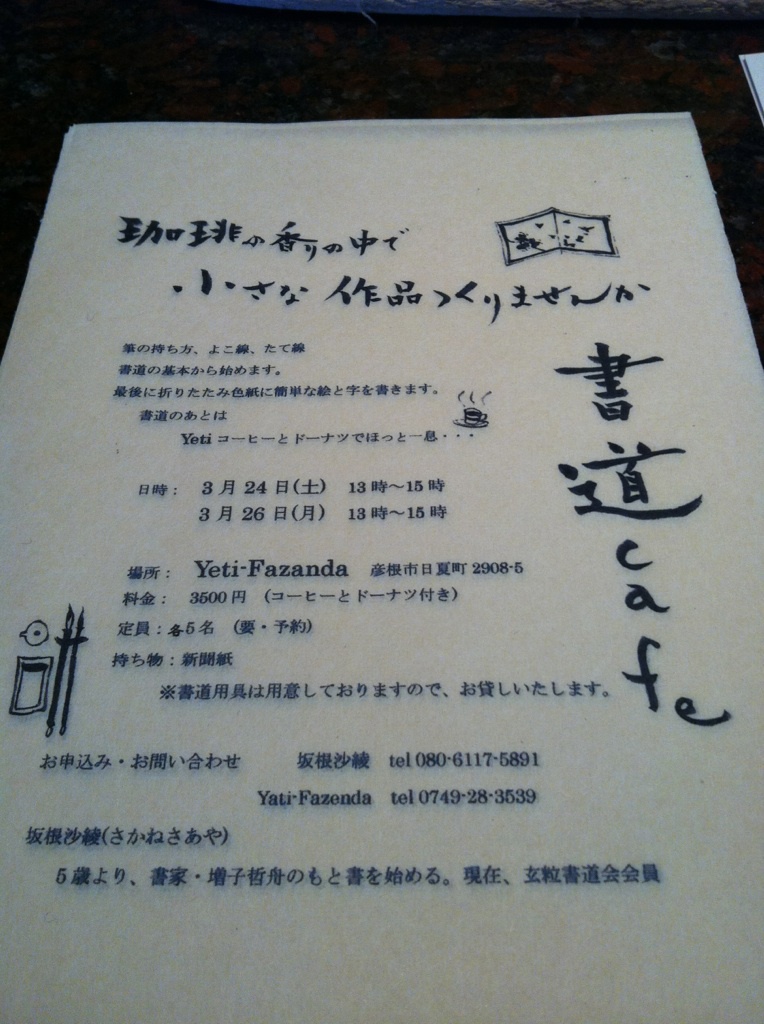 珈琲の香りの中で
小さな作品つくりませんか
書道cafe
筆の持ち方、よこ線、たて線
書道の基本から始めます。
最後に折りたたみ色紙に簡単な絵と字を書きます。
書道のあとは
Yeti コーヒーとドーナツでほっと一息・・・
日時： 3月24日(土) 13時〜15時
3月26日(月) 13時〜15時
場所： Yeti-Fazanda 彦根市日夏町2908-5
料金： 3500円 （コーヒーとドーナツ付き）
定員：各5名 （要・予約）
持ち物：新聞紙
※書道用具は用意しておりますので、お貸しいたします。
お申込み・お問い合わせ 坂根沙綾 tel 080-6117-5891
Yati-Fazenda tel 0749-28-3539
坂根沙綾(さかねさあや)
5歳より、書家・増子哲舟のもと書を始める。現在、玄粒書道会会員